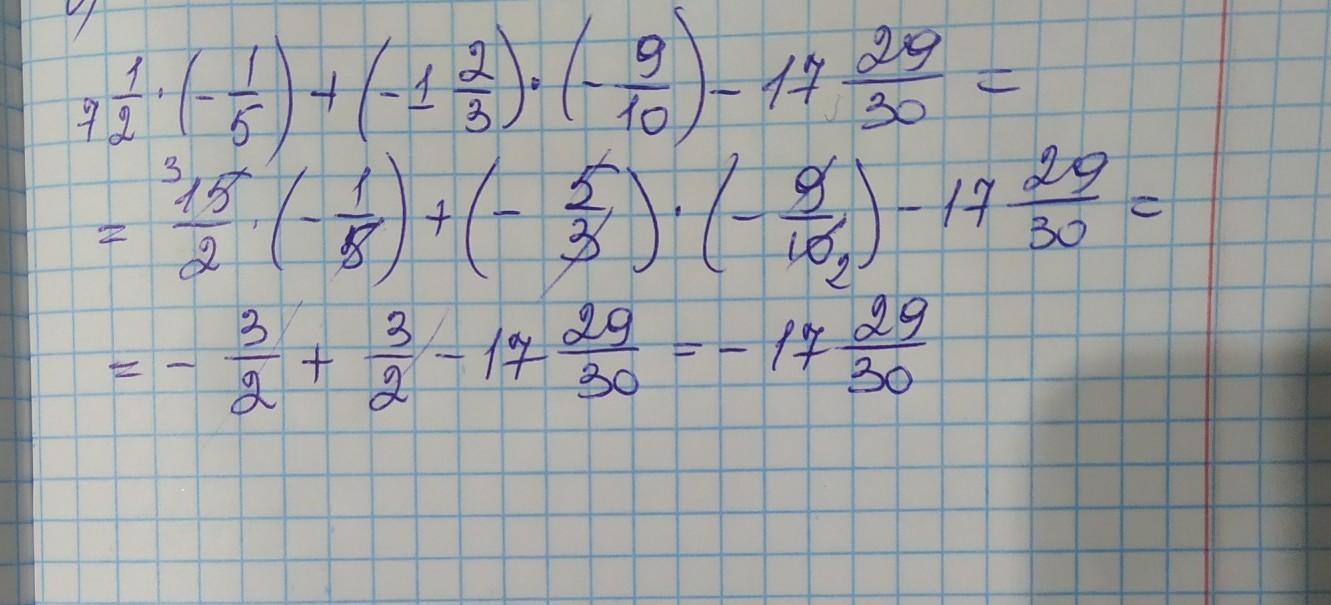 7 1/2 · (- 1/5) + (-1 2/3) · (- 9/10) - 17 29/30 =
= 15/2 · (- 1/5) + (- 5/3) · (- 9/10) - 17 29/30 =
= - 3/2 + 3/2 - 17 29/30 = - 17 29/30